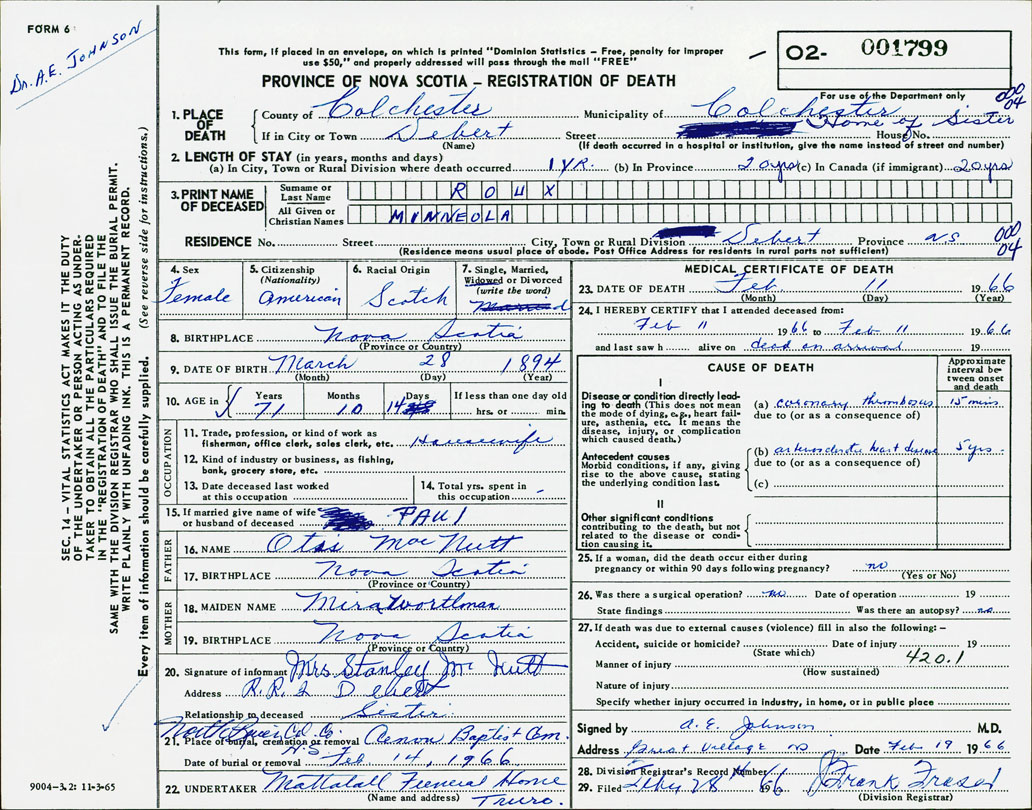 FORM 6
Dr. A.E. JOHNSON
This form, if placed in an envelope, on which is printed "Dominion Statistics – Free, penalty for improper
use $50," and properly addressed will pass through the mail "FREE"
PROVINCE OF NOVA SCOTIA – REGISTRATION OF DEATH
O2- 001799
For use of the Department only
000
04
1. PLACE OF DEATH County of Colchester Municipality of Colchester
Home of Sister
If in City or Town Debert Street House No.
(Name) (If death occurred in a hospital or institution, give the name instead of street and number)
2. LENGTH OF STAY (in years, months and days)
(a) In City, Town or Rural Division where death occurred 1 YR. (b) In Province 20 yrs (c) In Canada (if immigrant) 20 yrs
3. PRINT NAME OF DECEASED
Surname or Last Name ROUX
All Given or Christian Names MINNEOLA
RESIDENCE No. Street City, Town or Rural Division Debert Province NS
(Residence means usual place of abode. Post Office Address for residents in rural parts not sufficient)
000
04
4. Sex Female
5. Citizenship (Nationality) American
6. Racial Origin Scotch
7. Single, Married, Widowed or Divorced (write the word)
8. BIRTHPLACE Nova Scotia
(Province or Country)
9. DATE OF BIRTH March 28 1894
(Month) (Day) (Year)
10. AGE in Years 71 Months 10 Days 14 If less than one day old hrs. or min.
OCCUPATION
11. Trade, profession, or kind of work as fisherman, office clerk, sales clerk, etc. Housewife
12. Kind of industry or business, as fishing, bank, grocery store, etc.
13. Date deceased last worked at this occupation
14. Total yrs. spent in this occupation -
15. If married give name of wife or husband of deceased PAUl
FATHER
16. NAME Otis MacNutt
17. BIRTHPLACE Nova Scotia
(Province or Country)
MOTHER
18. MAIDEN NAME Mira Wortlman
19. BIRTHPLACE Nova Scotia
(Province or Country)
20. Signature of informant Mrs. Stanley McNutt
Address R.R. 2 Debert
Relationship to deceased Sister
21. Place of burial, cremation or removal Cenon Baptist Cem.
Date of burial or removal Feb 14, 1966
22. UNDERTAKER Mattatall Funeral Home
(Name and address) Truro.
MEDICAL CERTIFICATE OF DEATH
23. DATE OF DEATH Feb 11 1966
(Month) (Day) (Year)
24. I HEREBY CERTIFY that I attended deceased from:
Feb 11 1966 to Feb 11 1966
and last saw h alive on dead on arrival 19
CAUSE OF DEATH
Approximate interval between onset and death
I
Disease or condition directly leading to death (This does not mean the mode of dying, e.g., heart failure, asthenia, etc. It means the disease, injury, or complication which caused death.)
(a) coronary thrombosis 15 mins
due to (or as a consequence of)
Antecedent causes
Morbid conditions, if any, giving rise to the above cause, stating the underlying condition last.
(b) arteriosclerotic heart disease 5 yrs.
due to (or as a consequence of)
(c)
II
Other significant conditions contributing to the death, but not related to the disease or condition causing it.
25. If a woman, did the death occur either during pregnancy or within 90 days following pregnancy? no
(Yes or No)
26. Was there a surgical operation? no Date of operation 19
State findings Was there an autopsy? no
27. If death was due to external causes (violence) fill in also the following: –
Accident, suicide or homicide? Date of injury 19
(State which) 420.1
Manner of injury
(How sustained)
Nature of injury
Specify whether injury occurred in industry, in home, or in public place
Signed by A. E. Johnson M.D.
Address Great Village NS Date Feb 19 1966
28. Division Registrar's Record No.
29. Filed Feby 28 1966 Frank Fraser
(Division Registrar)
SEC. 14 – VITAL STATISTICS ACT MAKES IT THE DUTY
OF THE UNDERTAKER OR PERSON ACTING AS UNDER-
TAKER TO OBTAIN ALL THE PARTICULARS REQUIRED
IN THE "REGISTRATION OF DEATH" AND TO FILE THE
SAME WITH THE DIVISION REGISTRAR WHO SHALL ISSUE THE BURIAL PERMIT.
WRITE PLAINLY WITH UNFADING INK. THIS IS A PERMANENT RECORD.
Every item of information should be carefully supplied. (See reverse side for instructions.)
9004-3.2: 11-3-65